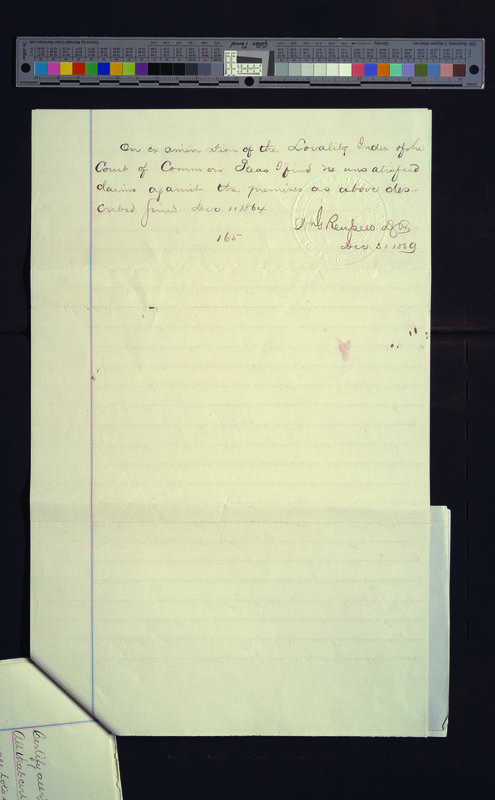 On examination of the Locality Index of the
Court of Common Pleas I find no unsatisfied
claims against the premises as above des-
cribed from Dec 11 1864
165
Dec 21 1889
Certify all